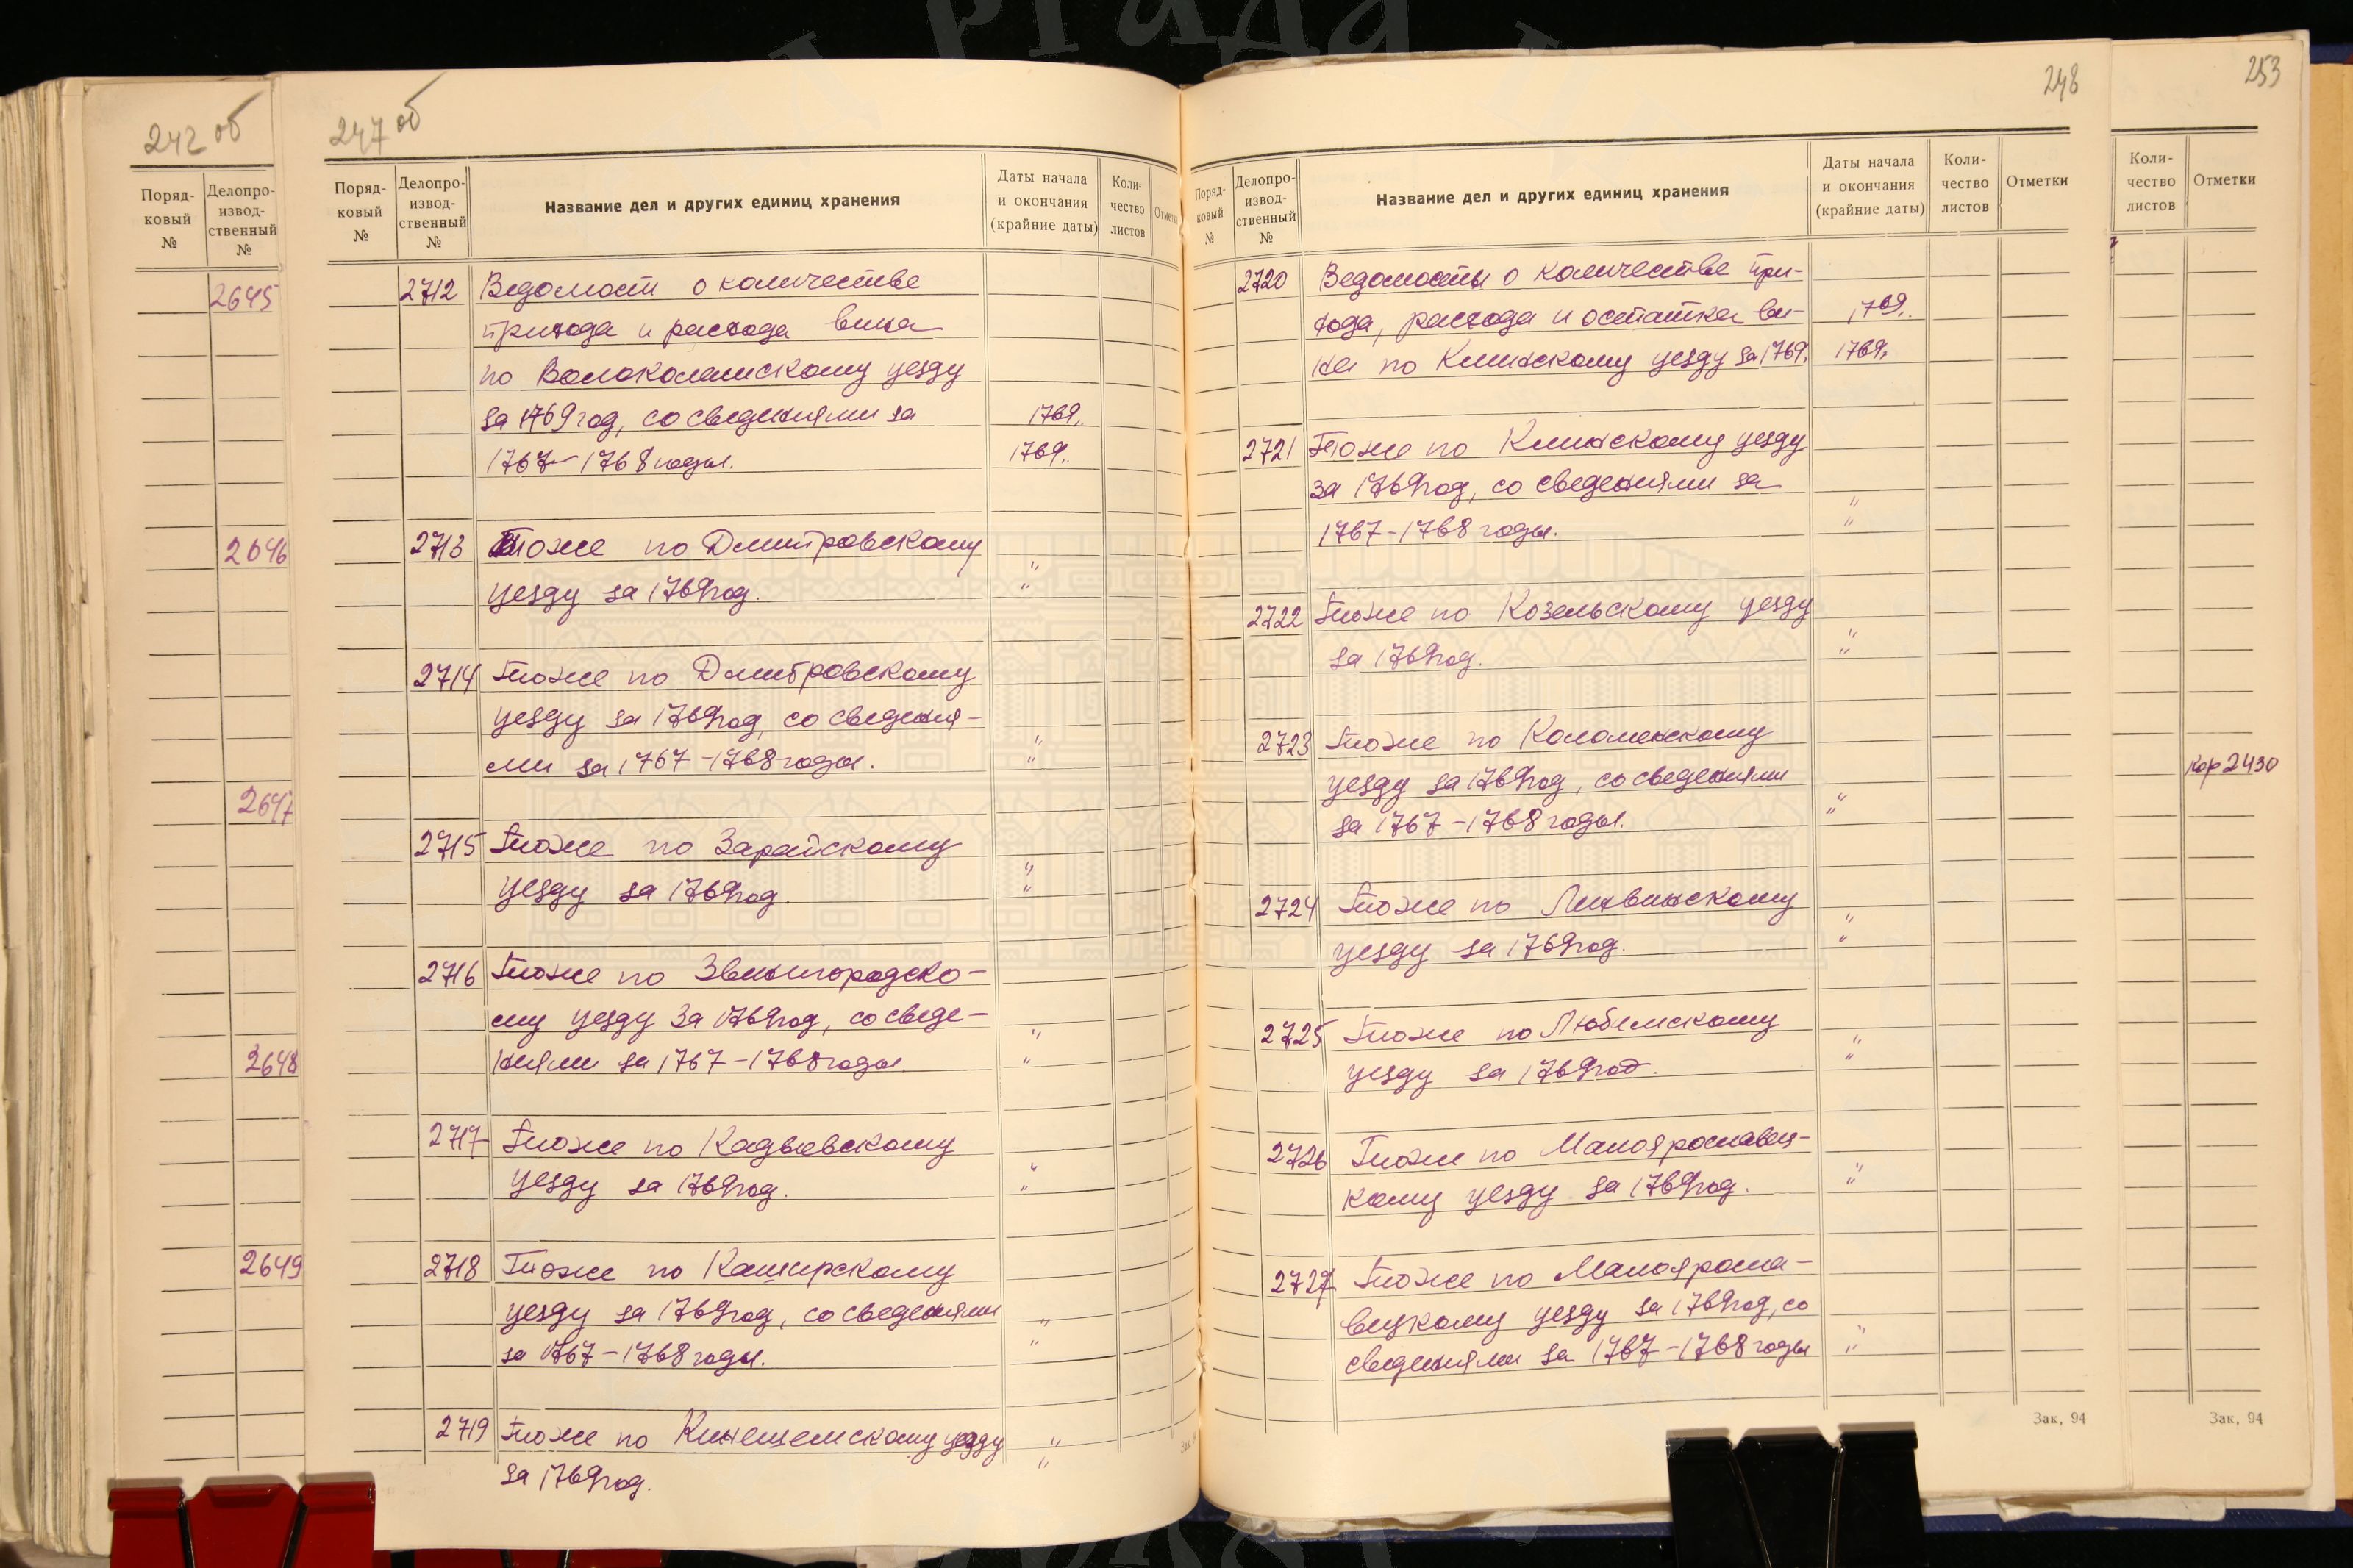 РГАДА
242 об
Поряд-
ковый
№
Делопро-
извод-
ственный
№
2645
2646
2647
2648
2649
247 об
Поряд-
ковый
№
Делопро-
извод-
ственный
№
Название дел и других единиц хранения
Даты начала
и окончания
(крайние даты)
Коли-
чество
листов
2712 Ведомости о количестве
прихода и расхода вина
по Волоколамскому уезду
за 1769 год, со сведениями за 1769.
1767-1768 годы. 1769.
2713 Тоже по Дмитровскому "
уезду за 1769 год. "
2714 Тоже по Дмитровскому
уезду за 1769 год, со сведения- "
ми за 1767-1768 годы. "
2715 Тоже по Зарайскому "
уезду за 1769 год. "
2716 Тоже по Звенигородско-
му уезду за 1769 год, со сведе- "
ниями за 1767-1768 годы. "
2717 Тоже по Кадыевскому "
уезду за 1769 год. "
2718 Тоже по Каширскому
уезду за 1769 год, со сведениями "
за 1767-1768 годы. "
2719 Тоже по Кинешемскому уезду "
за 1769 год. "
248
Поряд-
ковый
№
Делопро-
извод-
ственный
№
Название дел и других единиц хранения
Даты начала
и окончания
(крайние даты)
Коли-
чество
листов
Отметки
2720 Ведомости о количестве при-
хода, расхода и остатка ви- 1769.
на по Клинскому уезду за 1769. 1769.
2721 Тоже по Клинскому уезду
за 1769 год, со сведениями за "
1767-1768 годы. "
2722 Тоже по Козельскому уезду "
за 1769 год. "
2723 Тоже по Коломенскому
уезду за 1769 год, со сведениями "
за 1767-1768 годы. "
2724 Тоже по Лихвинскому "
уезду за 1769 год. "
2725 Тоже по Любимскому "
уезду за 1769 год. "
2726 Тоже по Малоярославец-
кому уезду за 1769 год. "
2727 Тоже по Малояросла-
вецкому уезду за 1769 год, со "
сведениями за 1767-1768 годы "
Зак. 94
253
Коли-
чество
листов
Отметки
Кор 2430
Зак. 94